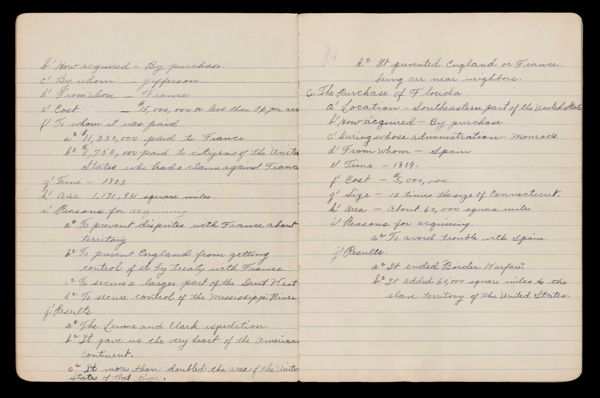 b' How acquired - By purchase
c' By whom - Jefferson
d' From whom - France
e' Cost - $15,000,000 or less than 3¢ per acre
f' To whom it was paid
a² $11,250,000 paid to France
b² $3,750,000 paid to citizens of the United
States who had a claim against France
g' Time - 1803
h' Area 1,171,931 square miles
i' Reasons for acquiring
a² To prevent disputes with France about
territory.
b² To prevent England from getting
control of it by treaty with France
c² To secure a larger part of the Great West
d² To secure control of the Mississippi River.
j' Results
a² The Lewis and Clark expedition.
b² It gave us the very heart of the American
continent.
c² It more than doubled the area of the United
States of that time.
d² It prevented England or France
being our near neighbors.
6. The Purchase of Florida
a' Location - Southeastern part of the United States
b' How acquired - By purchase
c' During whose administration - Monroe's
d' From whom - Spain
e' Time - 1819.
f' Cost - $5,000,000.
g' Size - 12 times the size of Connecticut.
h' Area - About 60,000 square miles
i' Reasons for acquiring.
a² To avoid trouble with Spain
j' Results.
a² It ended Border Warfare.
b² It added 60,000 square miles to the
slave territory of the United States.